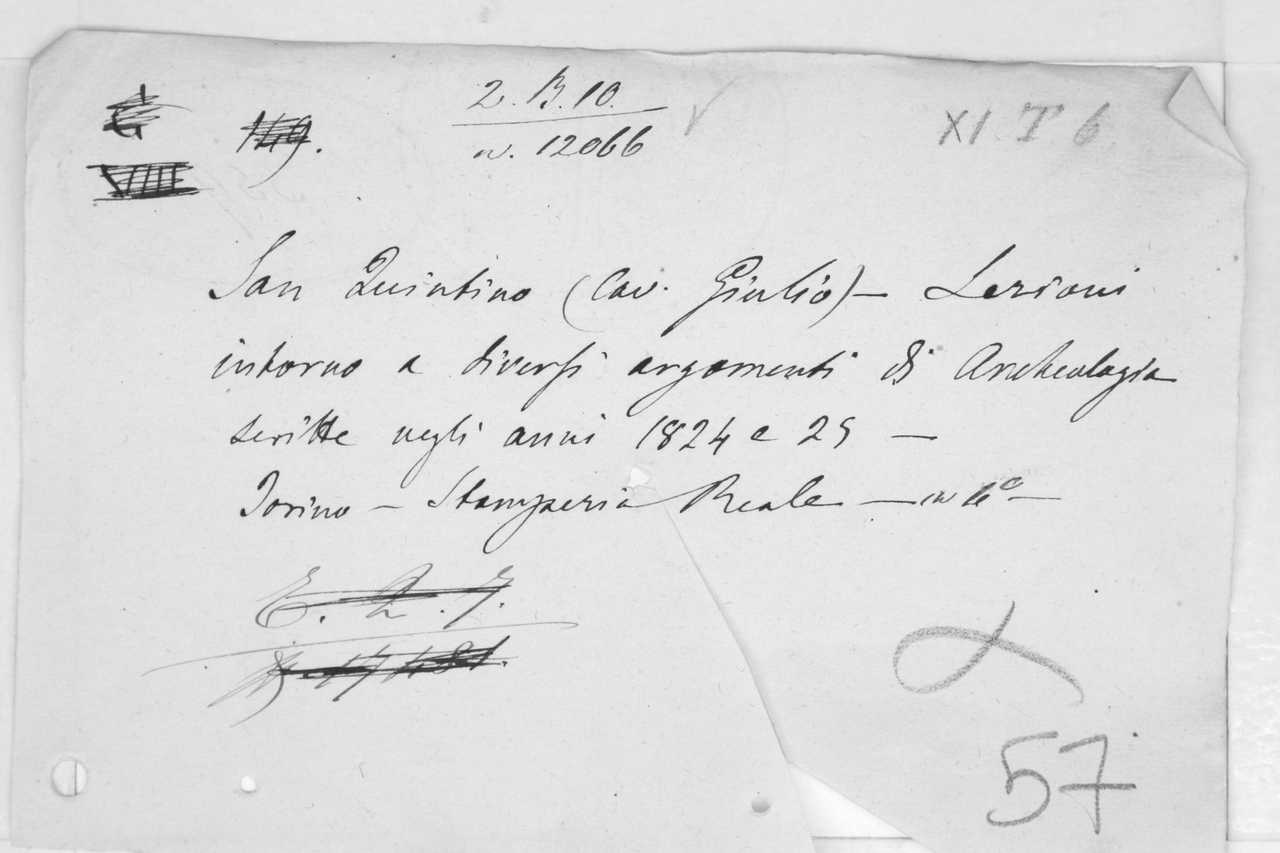 149.
2. B. 10.
n. 12066
XI T 6
VIIII
San Quintino (Cav. Giulio) — Lezioni
intorno a diversi argomenti di Archeologia
scritte negli anni 1824 e 25 —
Torino — Stamperia Reale — in 4° —
E. 2. 7.
57